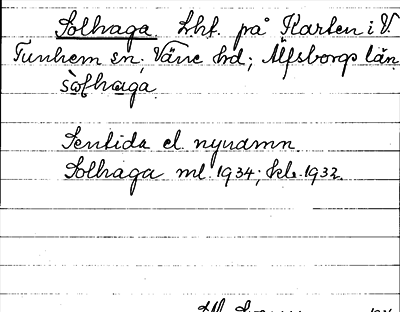 Solhaga Lht. på Karten i V.
Tunhem sn; Väne hd; Älfsborgs län
sòlhaga
Sentida el nynamn.
Solhaga ml. 1934; kle. 1932.